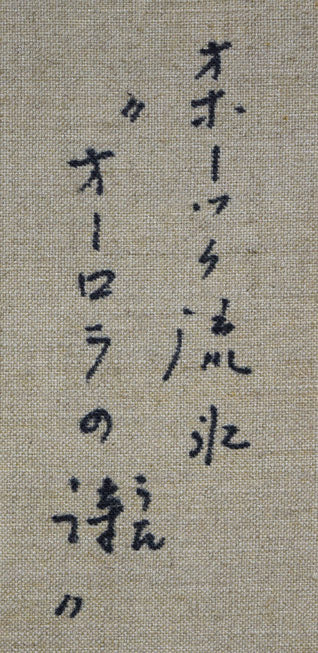 オホーツク流氷
〃オーロラの詩〃
うた